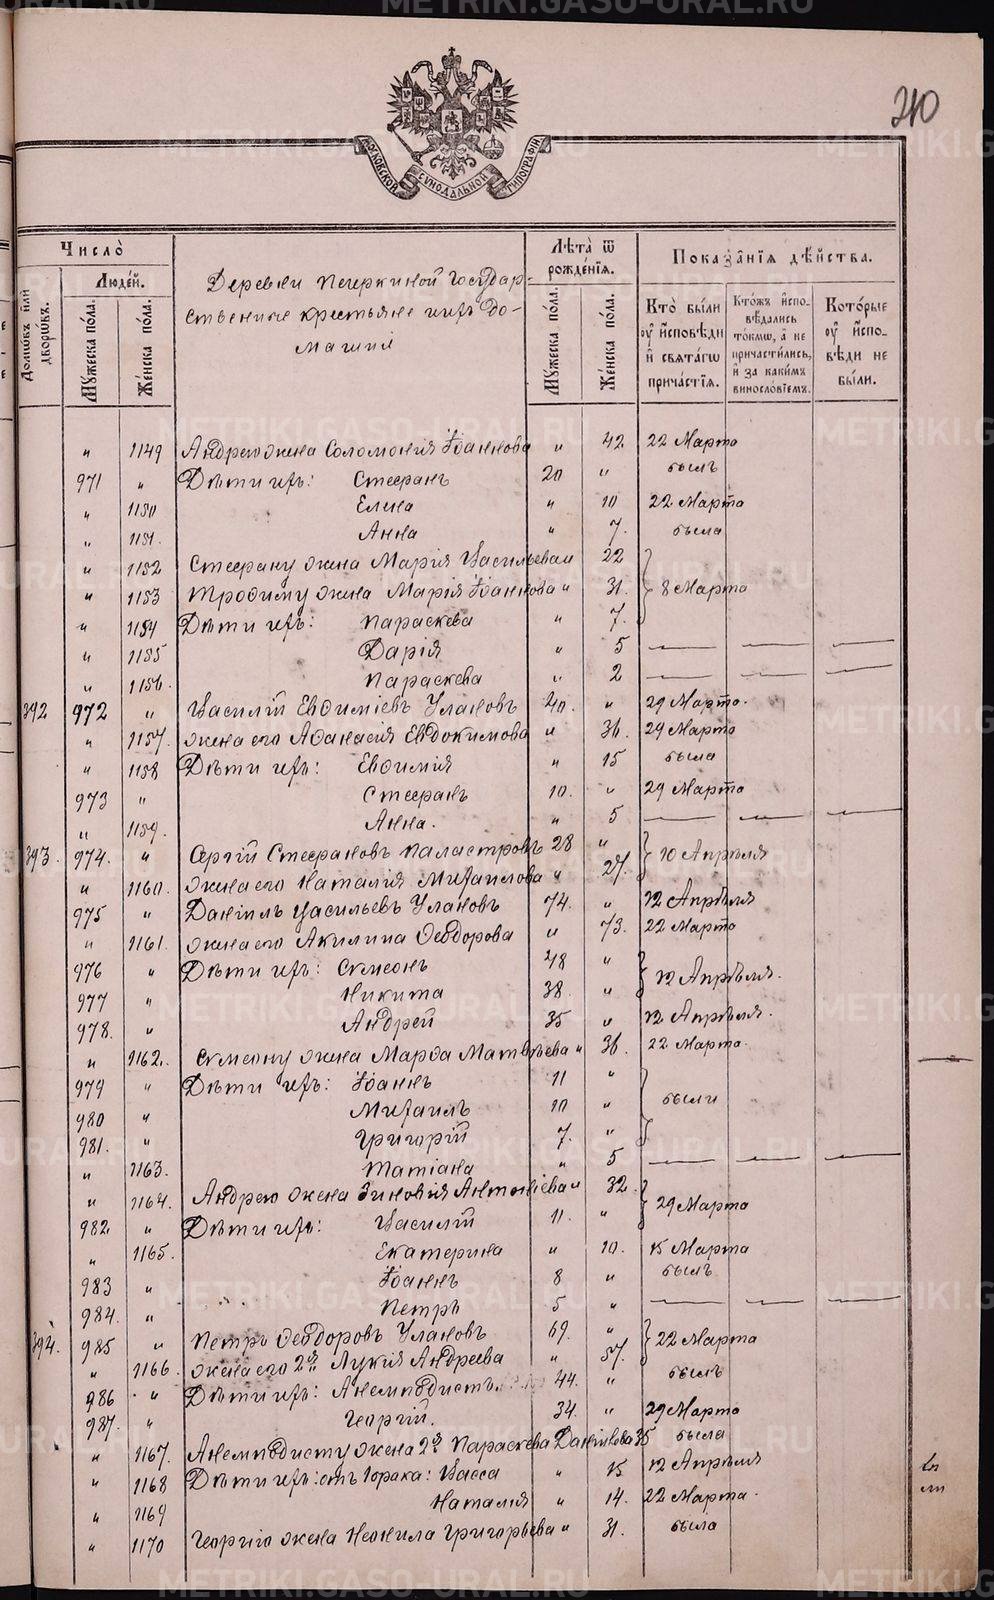 METRIKI.GASO-URAL.RU
210
МОСКОВСКОЙ СУНОДАЛЬНОЙ ТИПОГРАФІИ
Число̀
Людѐй.
Домѡвъ и҆лѝ дворѡвъ.
Мꙋжеска по́ла.
Же́нска по́ла.
Деревни Печеркиной Государ-
ственные крестьяне и ихъ до-
машніи
Лѣта̀ ѿ рожде́нїѧ.
Мꙋжеска по́ла.
Же́нска по́ла.
Показа̑нїѧ дѣ́йства.
Кто̀ бы́ли ᲂу҆ и҆́сповѣди и҆ свѧта́гѡ прича́стїѧ.
Кто́жъ и҆спо-вѣ́дались то́кмѡ, а҆ не причасти́лись, и҆ за каки́мъ винословіемъ.
Кото́рые ᲂу҆ и҆́спо-вѣди не бы́ли.
" 1149 Андрею жена Соломонія Іоаннова " 42 22 Марта
971 " Дѣти ихъ: Стефанъ 20 " былъ
" 1150 Елена " 10 22 Марта
" 1151. Анна " 7. была
" 1152 Стефану жена Марія Васильева " 22
" 1153 Трофиму жена Марія Іоаннова " 31. 8 Марта
" 1154 Дѣти ихъ: Параскева " 7.
" 1155 Дарія " 5 — — —
" 1156. Параскева " 2 — — —
392 972 " Василій Евфиміевъ Улановъ 40. " 29 Марта.
" 1157. жена его Афанасія Евдокимова " 36. 29 Марта
" 1158 Дѣти ихъ: Евфимія " 15 была
973 " Стефанъ 10. " 29 Марта
" 1159. Анна. " 5 — — —
393. 974. " Сергій Стефановъ Паластровъ 28 "
" 1160. жена его Наталія Михаилова " 27. 10 Апрѣля
975 " Даніилъ Васильевъ Улановъ 74. " 12 Апрѣля
" 1161. жена его Акилина Феодорова " 73. 22 Марта
976 " Дѣти ихъ: Сѵмеонъ 48 "
977 " Никита 38. " 12 Апрѣля.
978. " Андрей 35 " 12 Апрѣля.
" 1162. Сѵмеону жена Марфа Матвѣева " 36. 22 Марта.
979 " Дѣти ихъ: Іоаннъ 11 "
980 " Михаилъ 10 " были
981. " Григорій 7. "
" 1163. Татіана " 5 — — —
" 1164. Андрею жена Зиновія Антоніева " 32.
982. " Дѣти ихъ: Василій 11. " 29 Марта
" 1165. Екатерина " 10. 15 Марта
983 " Іоаннъ 8 " былъ
984. " Петръ 5 " — — —
394. 985 " Петръ Феодоровъ Улановъ 69. "
" 1166. жена его 2я Лукія Андреева " 57. 22 Марта
986 " Дѣти ихъ: Анемподистъ 44. " былъ
987. " Георгій. 34. " 29 Марта
" 1167. Анемподисту жена 2я Параскева Даніилова 35 была
" 1168 Дѣти ихъ: отъ 1 брака: Васса " 15 12 Апрѣля
" 1169 Наталія " 14. 22 Марта.
" 1170 Георгію жена Неонила Григорьева " 31. была